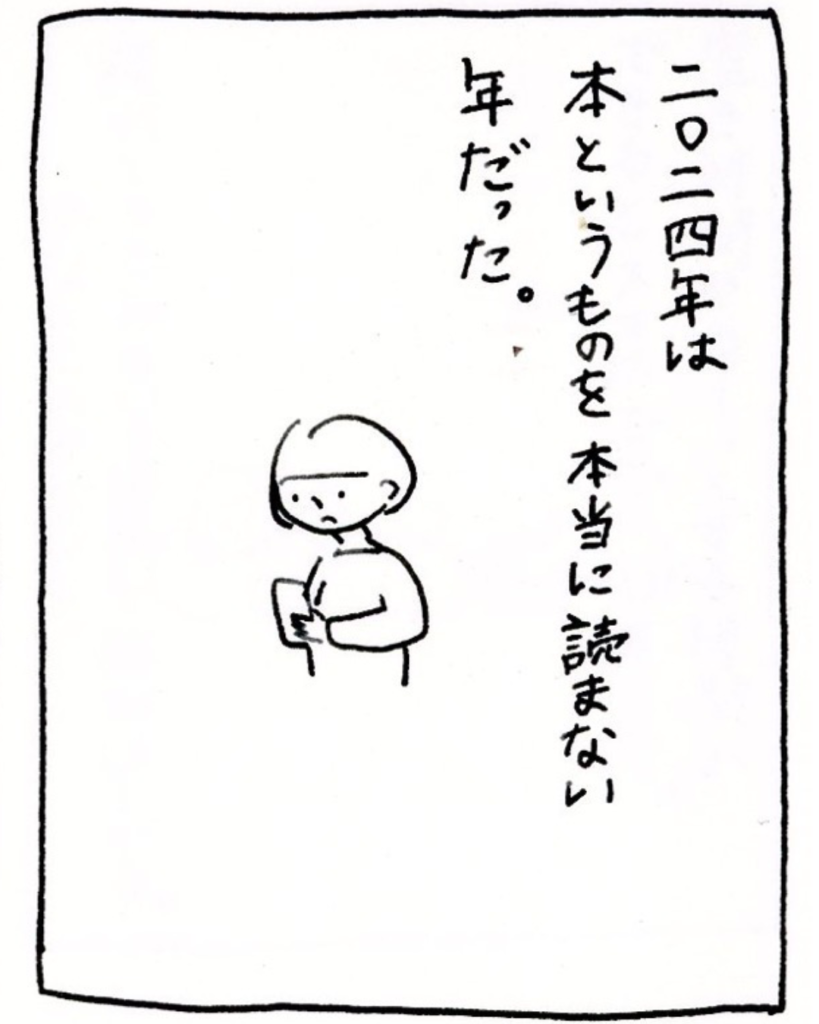 二〇二四年は
本というものを本当に読まない
年だった。